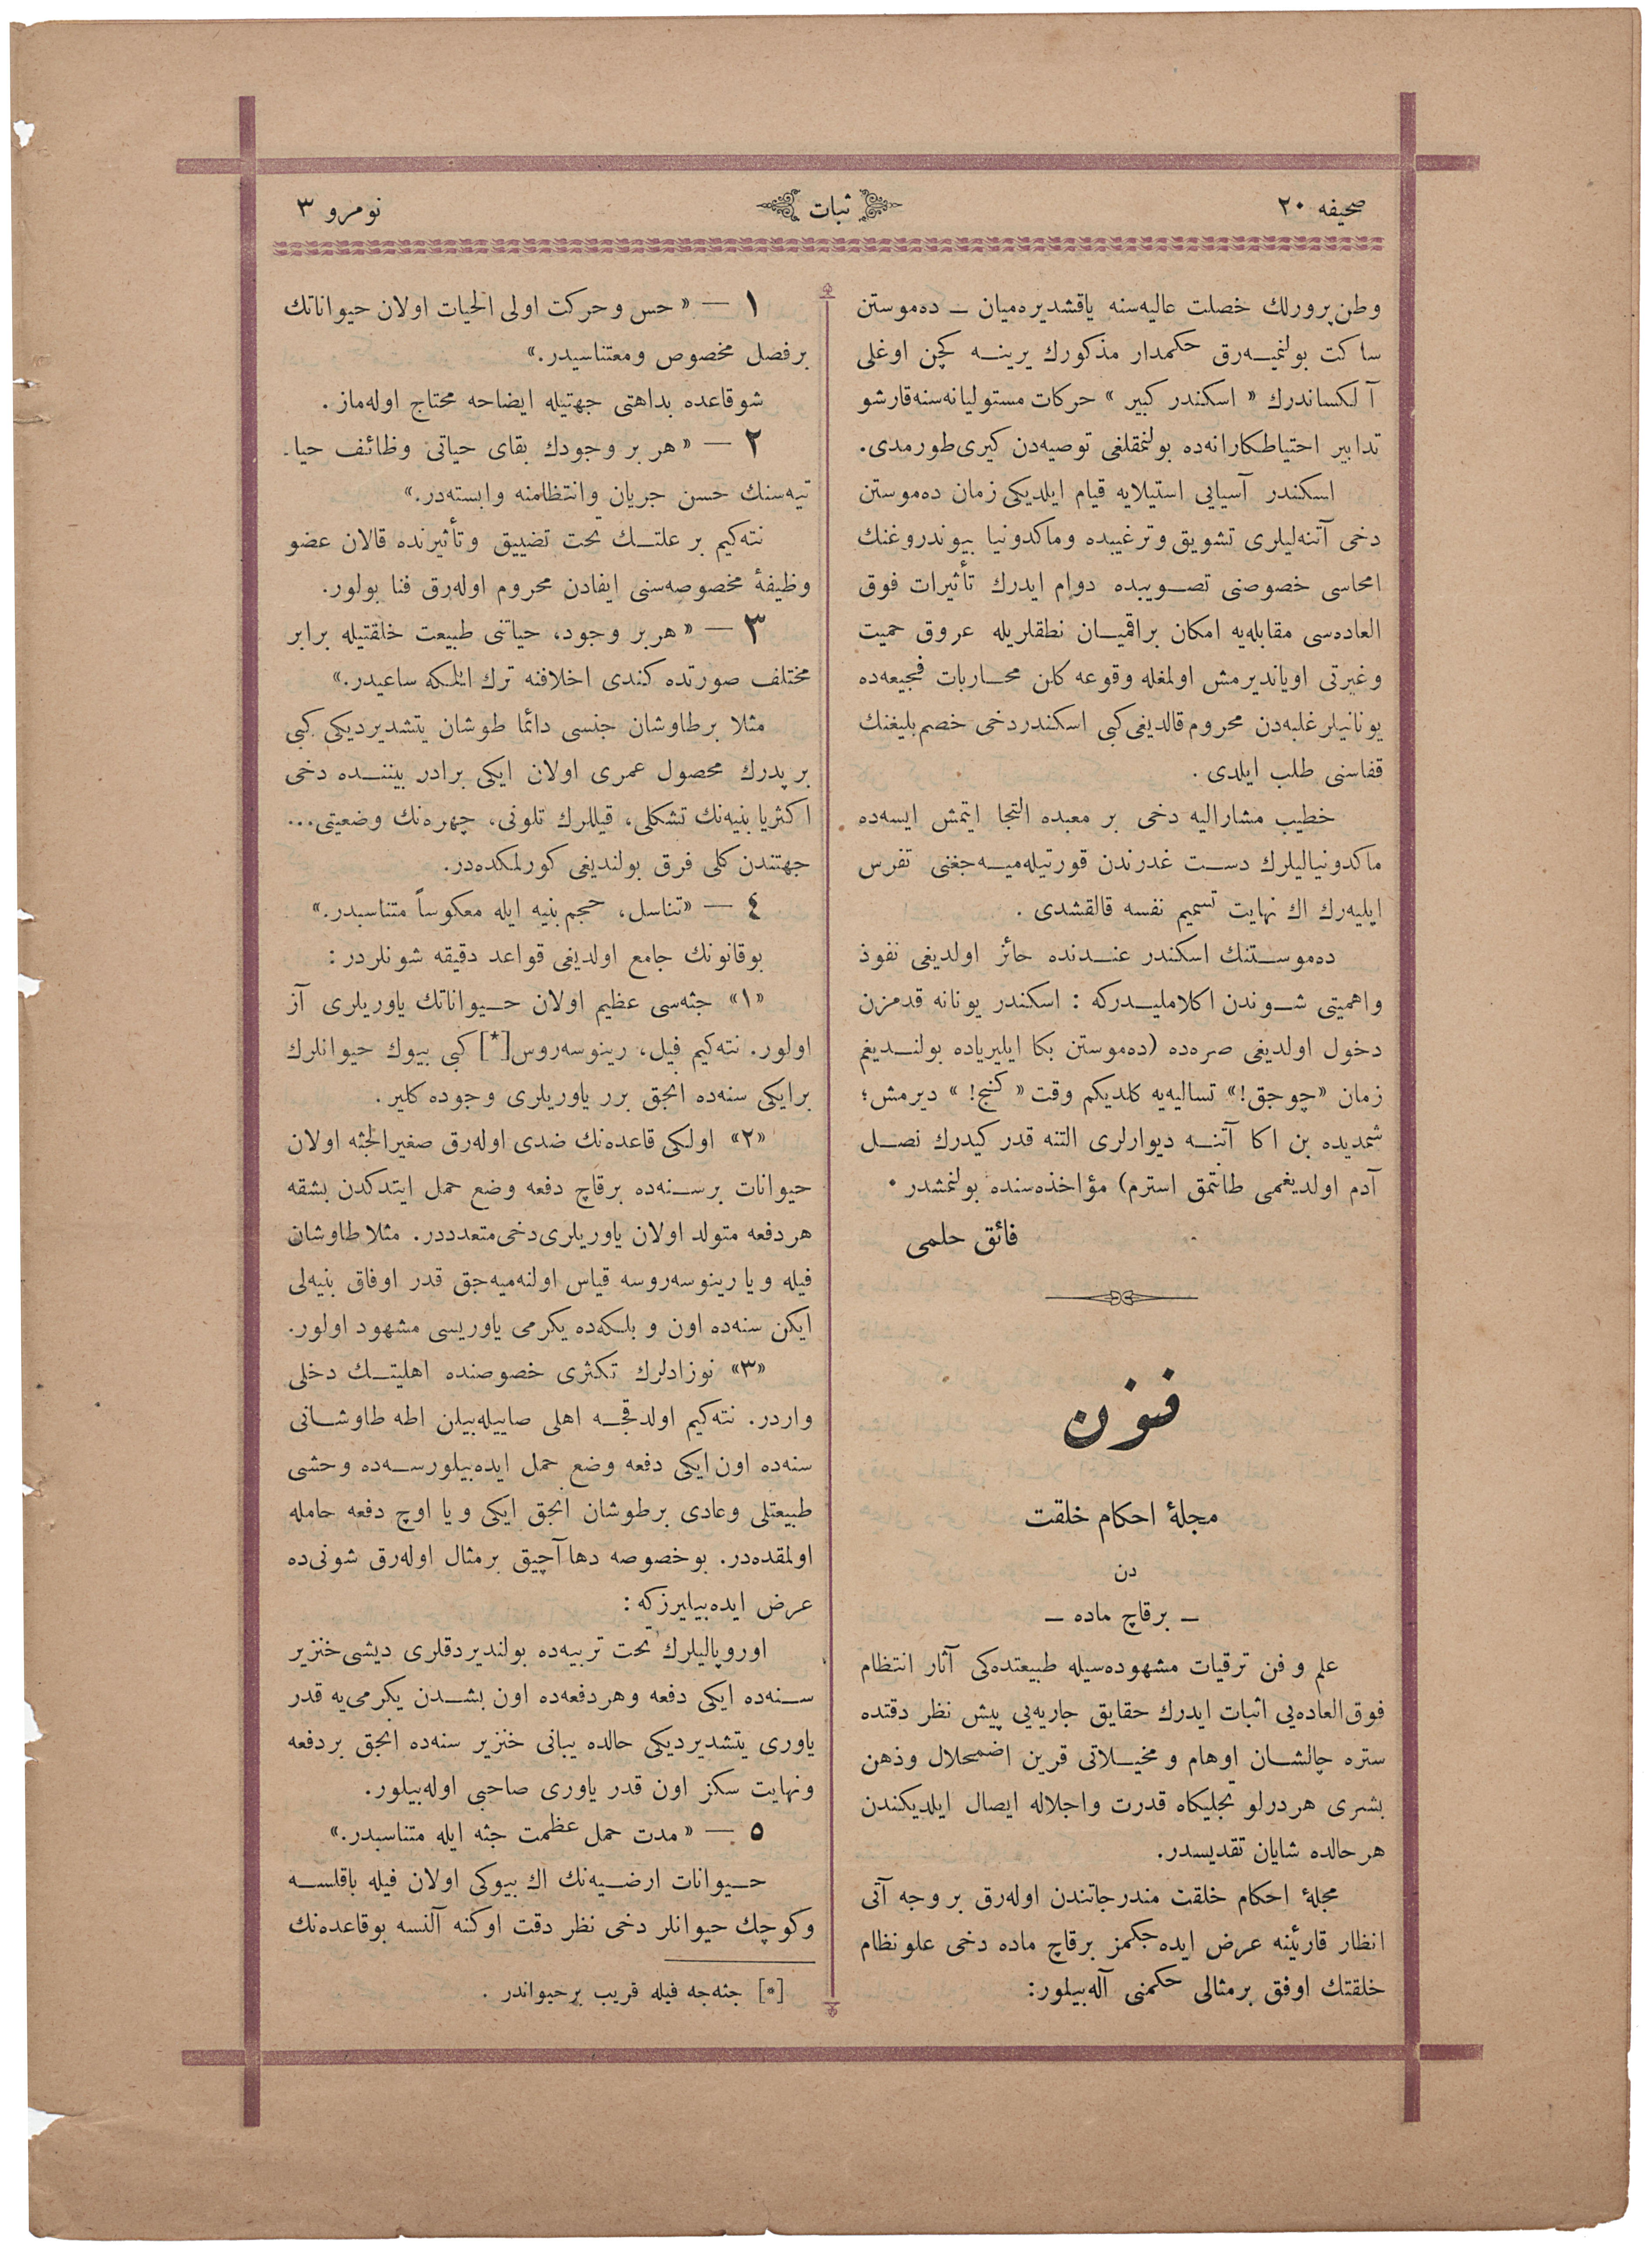 صحیفه ۲۰
ثبات
نومرو ۳
وطن‌پرورلك خصلت عالیه‌سنه یاقشدیره‌میان ـ ده‌موستن
ساکت بولنمیـه‌رق حکمدار مذکورك یرینـه کچن اوغلی
آلکساندرك « اسکندر کبیر » حرکات مستولیانه‌سنه قارشو
تدابیر احتیاطکارانه‌ده بولنمقلغی توصیه‌دن کیری طورمدی.
اسکندر آسیایی استیلایه قیام ایلدیکی زمان ده‌موستن
دخی آتنه‌لیلری تشویق و ترغیبده و ماکدونیا بیوندروغنك
امحاسی خصوصنی تصـویبده دوام ایدرك تأثیرات فوق
العاده‌سی مقابله‌یه امکان براقمیـان نطقلریله عروق حمیت
و غیرتی اویاندیرمش اولمغله وقوعه کلن محـاربات فجیعه‌ده
یونانیلر غلبه‌دن محروم قالدیغی کبی اسکندر دخی خصم بلیغنك
قفاسنی طلب ایلدی .
خطیب مشارالیه دخی بر معبده التجا ایتمش ایسه‌ده
ماکدونیالیلرك دسـت غدرندن قورتیله‌میـه‌جغنی تفرس
ایلیه‌رك اك نهایت تسمیم نفسه قالقشدی .
ده‌موسـتنك اسکندر عنـدنده حائز اولدیغی نفوذ
واهمیتی شـوندن اکلاملیـدرکه : اسکندر یونانه قدمزن
دخول اولدیغی صره‌ده (ده‌موستن بکا ایلیریاده بولنـدیغم
زمان «چوجق!» تسالیه‌یه کلدیکم وقت « کنج! » دیرمش؛
شمدیده بن اکا آتنـه دیوارلری التنه قدر کیدرك نصـل
آدم اولدیغمی طانتمق استرم) مؤاخذه‌سنده بولنمشدر .
فائق حلمی
فنون
مجلۀ احکام خلقت
دن
ـ برقاچ ماده ـ
علم و فن ترقیات مشهوده‌سیله طبیعتده‌کی آثار انتظام
فوق‌العاده‌یی اثبات ایدرك حقایق جاریه‌یی پیش نظر دقتده
ستره چالشـان اوهام و مخیـلاتی قرین اضمحلال وذهن
بشری هر درلو تجلیکاه قدرت واجلاله ایصال ایلدیکندن
هر حالده شایان تقدیسدر.
مجلۀ احکام خلقت مندرجاتندن اوله‌رق بر وجه آتی
انظار قارئینه عرض ایده‌جکمز برقاچ ماده دخی علو نظام
خلقتك اوفق برمثالی حکمنی آله‌بیلور:
۱ — « حس و حرکت اولی الحیات اولان حیواناتك
برفصل مخصوص ومعتناسیدر.»
شو قاعده بداهتی جهتیله ایضاحه محتاج اوله‌ماز .
۲ — « هر بر وجودك بقای حیاتی وظائف حیا۔
تیه‌سنك حسن جریان وانتظامنه وابسته‌در.»
نته‌کیم بر علتـك تحت تضییق و تأثیرنده قالان عضو
وظیفۀ مخصوصه‌سنی ایفادن محروم اوله‌رق فنا بولور.
۳ — « هر بر وجود، حیاتنی طبیعت خلقتیله برابر
مختلف صورتده کندی اخلافنه ترك ایلمکه ساعیدر.»
مثلا برطاوشان جنسی دائما طوشان یتشدیردیکی کبی
بر پدرك محصول عمری اولان ایکی برادر بیننـده دخی
اکثریا بنیه‌نك تشکلی، قیللرك تلونی، چهره‌نك وضعیتی...
جهتندن کلی فرق بولندیغی کورلمکده‌در.
٤ — «تناسل، حجم بنیه ایله معکوساً متناسبدر.»
بوقانونك جامع اولدیغی قواعد دقیقه شونلردر :
«۱» جثه‌سی عظیم اولان حـیواناتك یاوریلری آز
اولور. نته‌کیم فیل، رینوسه‌روس[*] کبی بیوك حیوانلرك
برایکی سنه‌ده انجق برر یاوریلری وجوده کلیر.
«۲» اولکی قاعده‌نك ضدی اوله‌رق صغیرالجثه اولان
حیوانات برسـنه‌ده برقاچ دفعه وضع حمل ایتدکدن بشقه
هر دفعه متولد اولان یاوریلری دخی متعدددر. مثلا طاوشان
فیله و یا رینوسه‌روسه قیاس اولنه‌میه‌جق قدر اوفاق بنیه‌لی
ایکن سنه‌ده اون و بلکه‌ده یکرمی یاوریسی مشهود اولور.
«۳» نوزادلرك تکثری خصوصنده اهلیتـك دخلی
واردر. نته‌کیم اولدقجـه اهلی صاییله‌بیلن اطه طاوشـانی
سنه‌ده اون‌ایکی دفعه وضع حمل ایده‌بیلورسـه‌ده وحشی
طبیعتلی وعادی برطوشان انجق ایکی و یا اوچ دفعه حامله
اولمقده‌در. بوخصوصه دها آچیق برمثال اوله‌رق شونی‌ده
عرض ایده‌بیلیرزکه :
اوروپالیلرك تحت تربیه‌ده بولندیردقلری دیشی خنزیر
سـنه‌ده ایکی دفعه وهر دفعه‌ده اون بشـدن یکرمی‌یه قدر
یاوری یتشدیردیکی حالده یبانی خنزیر سنه‌ده انجق بردفعه
ونهایت سکز اون قدر یاوری صاحبی اوله‌بیلور.
٥ — « مدت حمل عظمت جثه ایله متناسبدر.»
حـیوانات ارضـیه‌نك اك بیوکی اولان فیله باقلسـه
وکوچك حیوانلر دخی نظر دقت اوکنه آلنسه بوقاعده‌نك
[*] جثه‌جه فیله قریب برحیواندر .